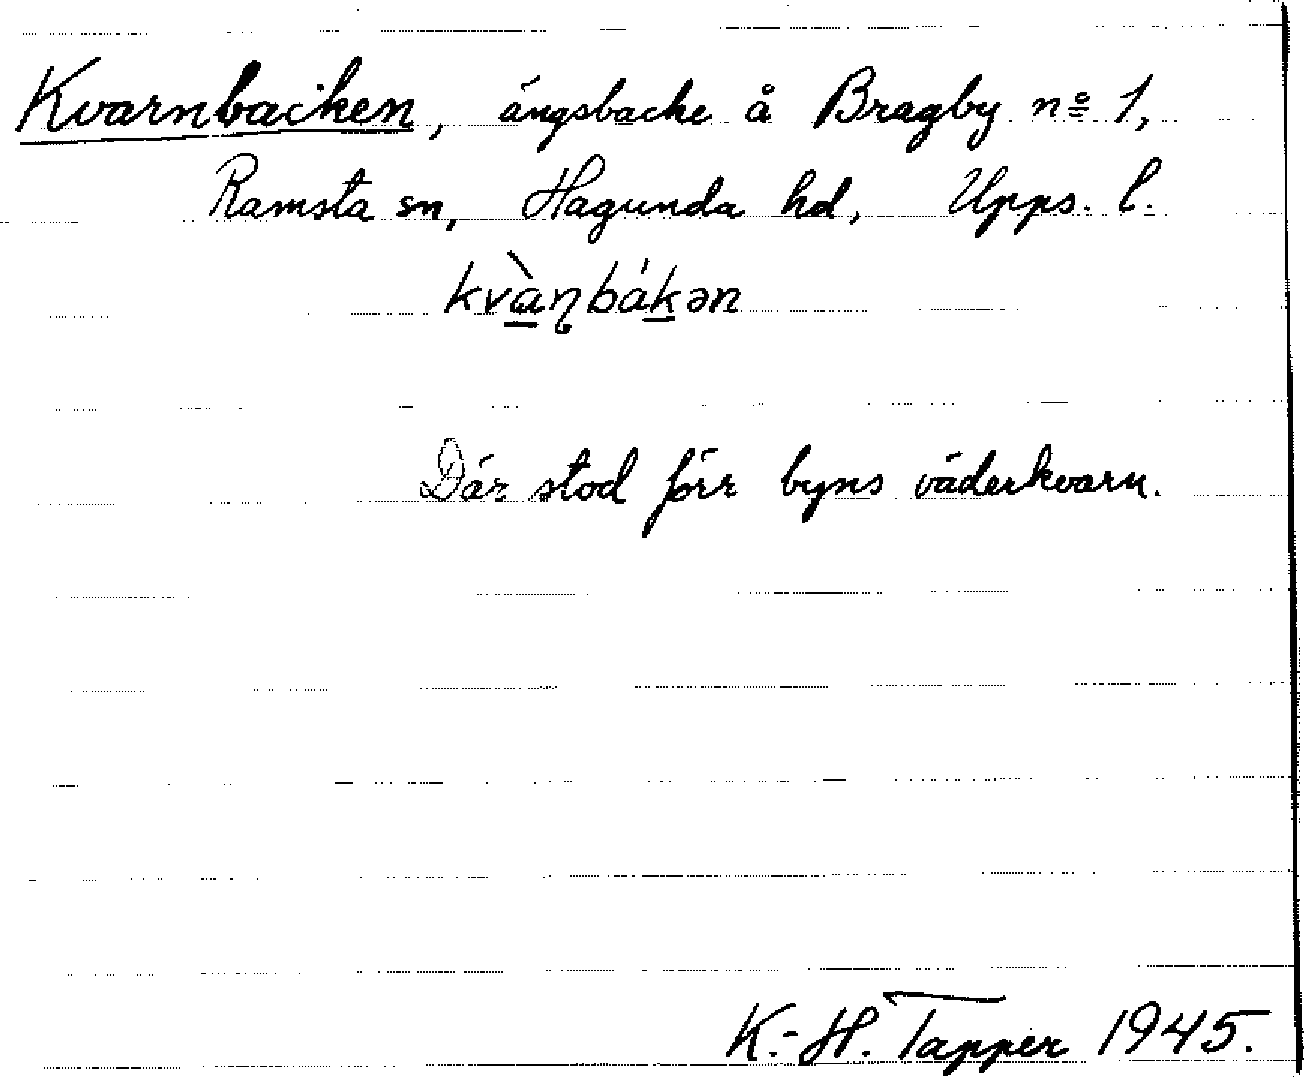 Kvarnbacken, ängsbacke å Bragby nº 1,
Ramsta sn, Hagunda hd, Upps. l.
kvàɳbákən
Där stod förr byns väderkvarn.
K.-H. Tapper 1945.